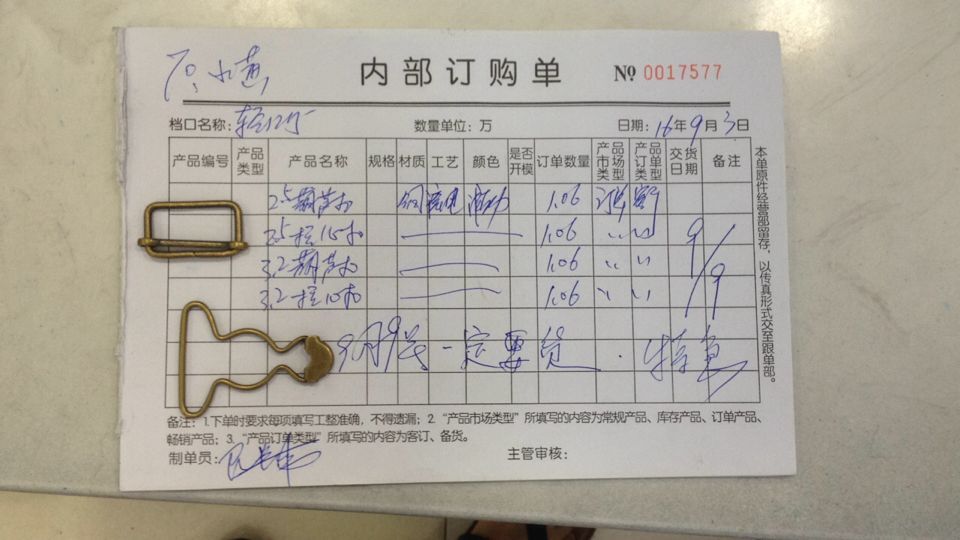 内部订购单 № 0017577
档口名称： 数量单位：万 日期：16年9月3日
产品编号 产品类型 产品名称 规格 材质 工艺 颜色 是否开模 订单数量 产品市场类型 产品订单类型 交货日期 备注
2.5葫芦扣 1.06 订单
1.06 〃 〃
3.2葫芦扣 1.06 〃 〃
1.06 〃 〃
9/9
9月9号一定要货．特急
本单原件经营部留存，以传真形式交至跟单部。
备注：1.下单时要求每项填写工整准确，不得遗漏；2.“产品市场类型”所填写的内容为常规产品、库存产品、订单产品、
畅销产品；3.“产品订单类型”所填写的内容为客订、备货。
制单员： 主管审核：